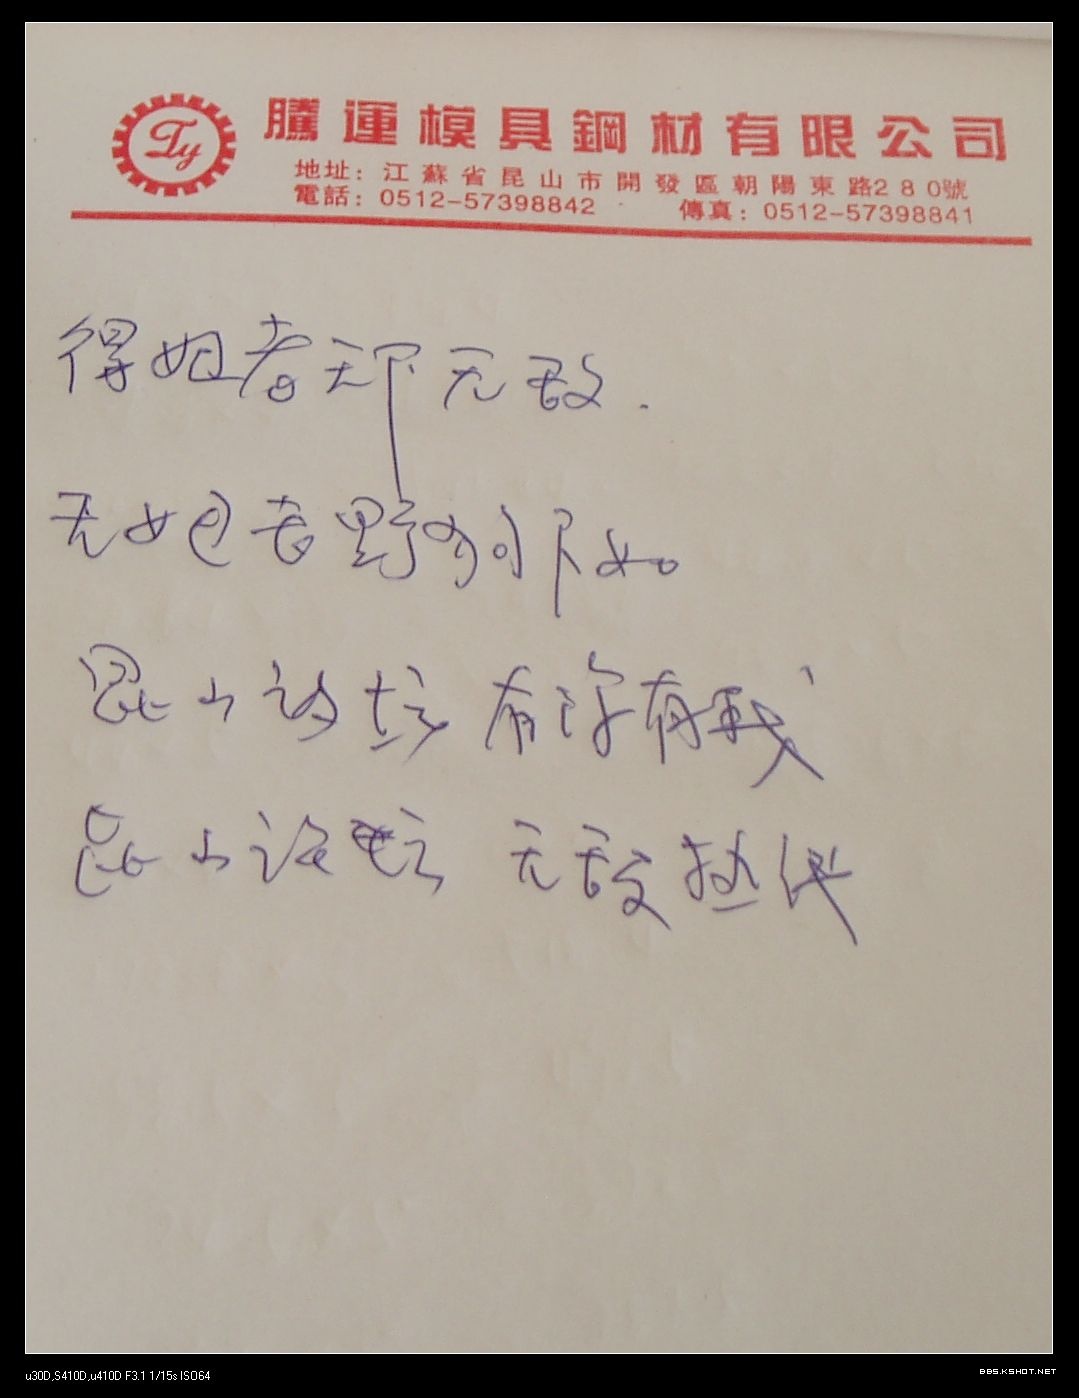 Ty
騰運模具鋼材有限公司
地址：江蘇省昆山市開發區朝陽東路280號
電話：0512-57398842 傳真：0512-57398841
得妞者天下无敌.
无妞者野狗不如
昆山论坛 有你有我
昆山论坛 无敌热线
u30D,S410D,u410D F3.1 1/15s ISO64
BBS.KSHOT.NET